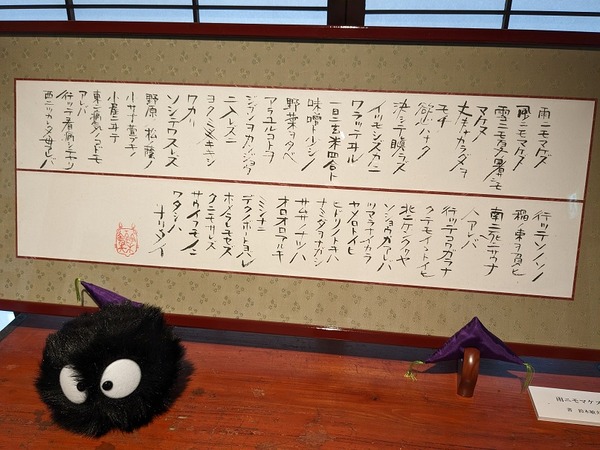 雨ニモマケズ
風ニモマケズ
雪ニモ夏ノ暑サニモ
マケヌ
丈夫ナカラダヲ
モチ
慾ハナク
決シテ瞋ラズ
イツモシヅカニ
ワラッテヰル
一日ニ玄米四合ト
味噌ト少シノ
野菜ヲタベ
アラユルコトヲ
ジブンヲカンジョウ
ニ入レズニ
ヨクミキキシ
ワカリ
ソシテワスレズ
野原ノ松ノ蔭ノ
小サナ萱ブキノ
小屋ニヰテ
東ニ病気ノコドモ
アレバ
行ッテ看病シテヤリ
西ニツカレタ母アレバ
行ッテソノ
稲ノ束ヲ負ヒ
南ニ死ニサウナ
人アレバ
行ッテコワガラナ
クテモイヽトイヒ
北ニケンクヮヤ
ソショウガアレバ
ツマラナイカラ
ヤメロトイヒ
ヒドリノトキハ
ナミダヲナガシ
サムサノナツハ
オロオロアルキ
ミンナニ
デクノボートヨバレ
ホメラレモセズ
クニモサレズ
サウイフモノニ
ワタシハ
ナリタイ
雨ニモマケズ
書 鈴木敏